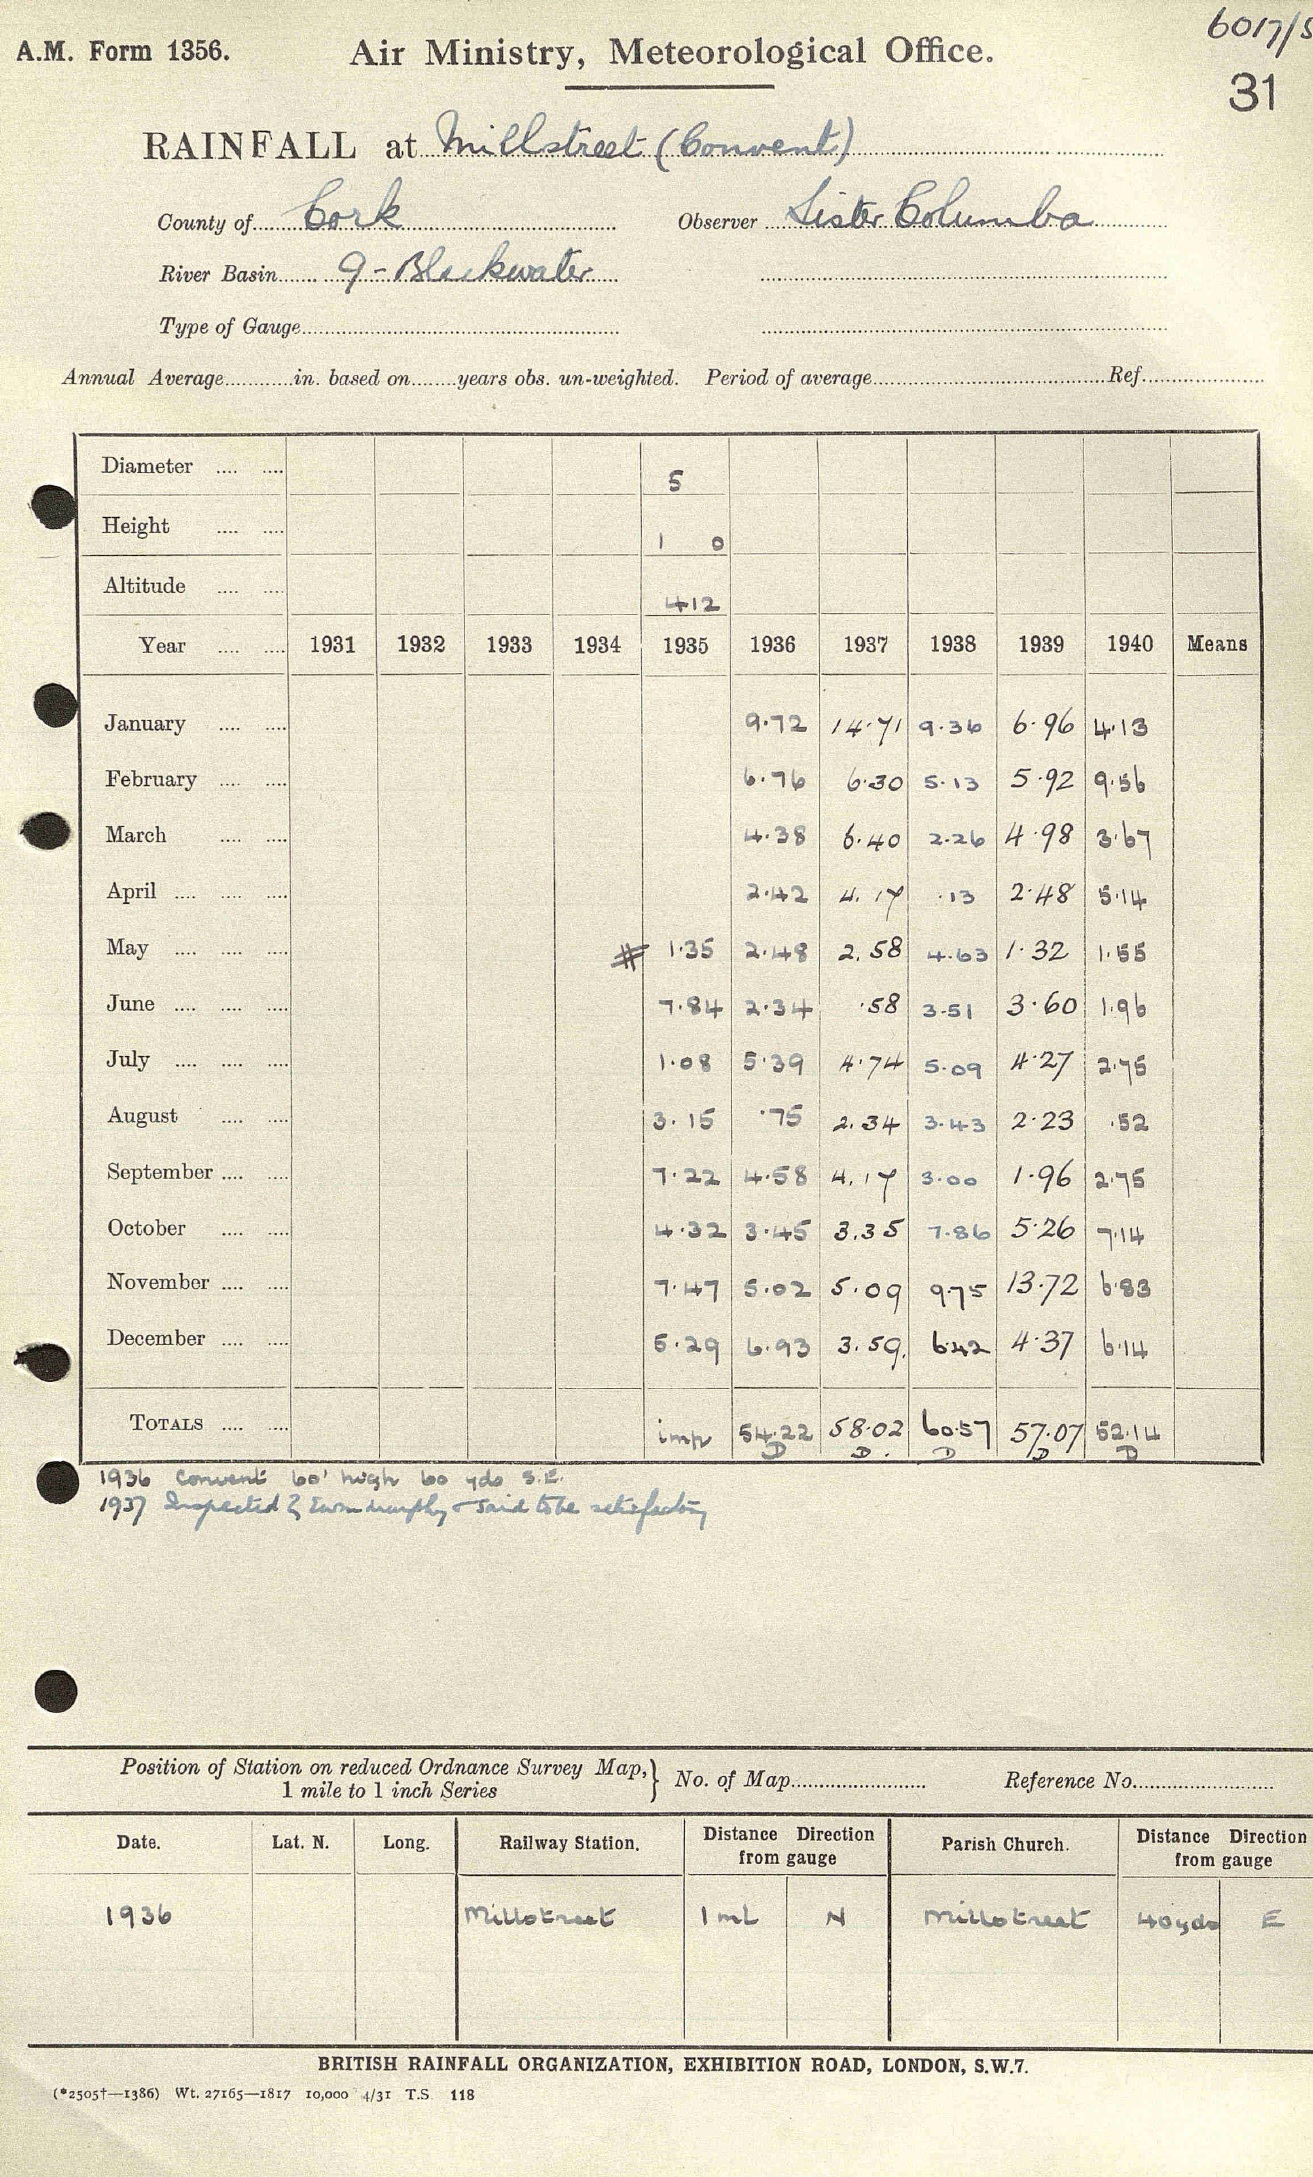 6017/5
A.M. Form 1356. Air Ministry, Meteorological Office.
31
RAINFALL at Millstreet (Convent)
County of Cork Observer Sister Columba
River Basin 9 - Blackwater
Type of Gauge
Annual Average in. based on years obs. un-weighted. Period of average Ref.
Diameter 5
Height 1 0
Altitude 412
Year 1931 1932 1933 1934 1935 1936 1937 1938 1939 1940 Means
January 9.72 14.71 9.36 6.96 4.13
February 6.76 6.30 5.13 5.92 9.56
March 4.38 6.40 2.26 4.98 3.67
April 2.42 4.17 .13 2.48 5.14
May # 1.35 2.48 2.58 4.63 1.32 1.55
June 7.84 2.34 .58 3.51 3.60 1.96
July 1.08 5.39 4.74 5.09 4.27 2.75
August 3.15 .75 2.34 3.43 2.23 .52
September 7.22 4.58 4.17 3.00 1.96 2.75
October 4.32 3.45 3.35 7.86 5.26 7.14
November 7.47 5.02 5.09 9.75 13.72 6.83
December 5.29 6.93 3.59 6.42 4.37 6.14
TOTALS imp 54.22 58.02 60.57 57.07 52.14
D D. D D D
1936 Convent 60' high 60 yds S.E.
1937 Inspected by murphy & said to be satisfactory
Position of Station on reduced Ordnance Survey Map, 1 mile to 1 inch Series } No. of Map Reference No.
Date. Lat. N. Long. Railway Station. Distance Direction from gauge Parish Church. Distance Direction from gauge
1936 Millstreet 1 ml N Millstreet 40 yds E
BRITISH RAINFALL ORGANIZATION, EXHIBITION ROAD, LONDON, S.W.7.
(*2505†—1386) Wt. 27165—1817 10,000 4/31 T.S. 118